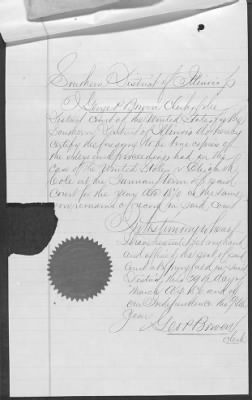 Southern District of Illinois
I George P. Bowen Clerk of the
District Court of the United States for the
Southern District of Illinois do hereby
certify the foregoing to be true copies of
the proceedings had in the
case of the United States v
Cole at the Summer term of said
Court for the year A.D. 18 as the same
now remains of record in said Court
In testimony whereof
I have hereunto set my hand
and affixed the seal of said
Court at Springfield in said
District this 29th day of
March A.D. 18 and of
our Independence the
year
Geo P Bowen
Clerk